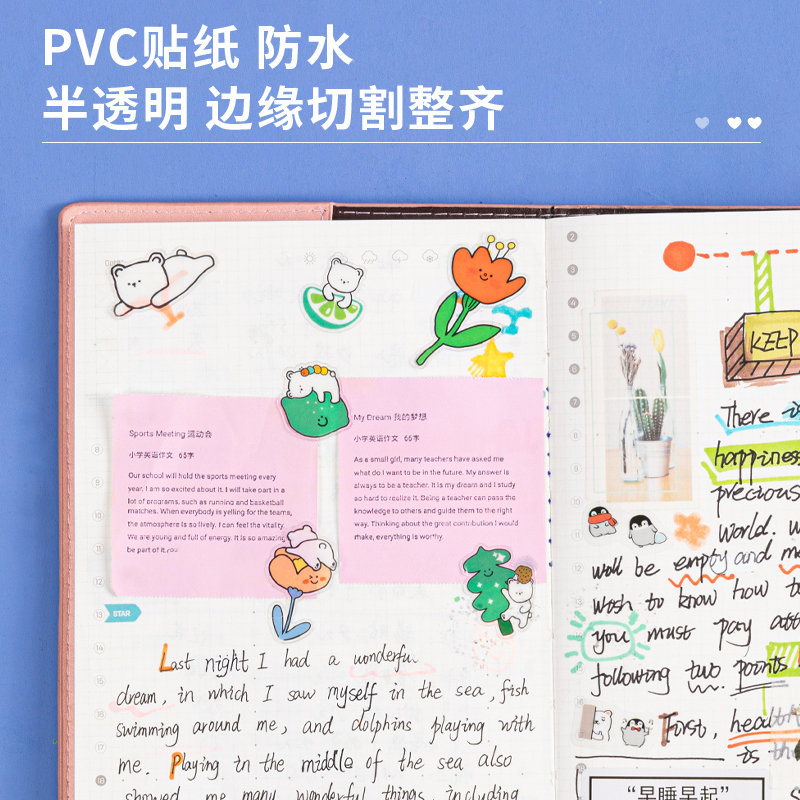 PVC贴纸 防水
半透明 边缘切割整齐
Sports Meeting 运动会
小学英语作文 65字
Our school will hold the sports meeting every
year. I am so excited about it. I will take part in a
lot of programs, such as running and basketball
matches. When everybody is yelling for the teams,
the atmosphere is so lively. I can feel the vitality.
We are young and full of energy. It is so amazing
be part of it.
My Dream 我的梦想
小学英语作文 66字
As a small girl, many teachers have asked me
what do I want to be in the future. My answer is
always to be a teacher. It is my dream and I study
so hard to realize it. Being a teacher can pass the
knowledge to others and guide them to the right
way. Thinking about the great contribution I would
make, everything is worthy.
8
9
10
11
12
13
STAR
14
15
16
17
18
Last night I had a wonderful
dream, in which I saw myself in the sea, fish
swimming around me, and dolphins playing with
me. Playing in the middle of the sea also
showed me many wonderful things, including
2
3
4
5
6
7
KEEP
There is
happiness
precious
world. w
will be empty and me
wish to know how to
you must pay att
following two points
First, health
is th
"早睡早起"